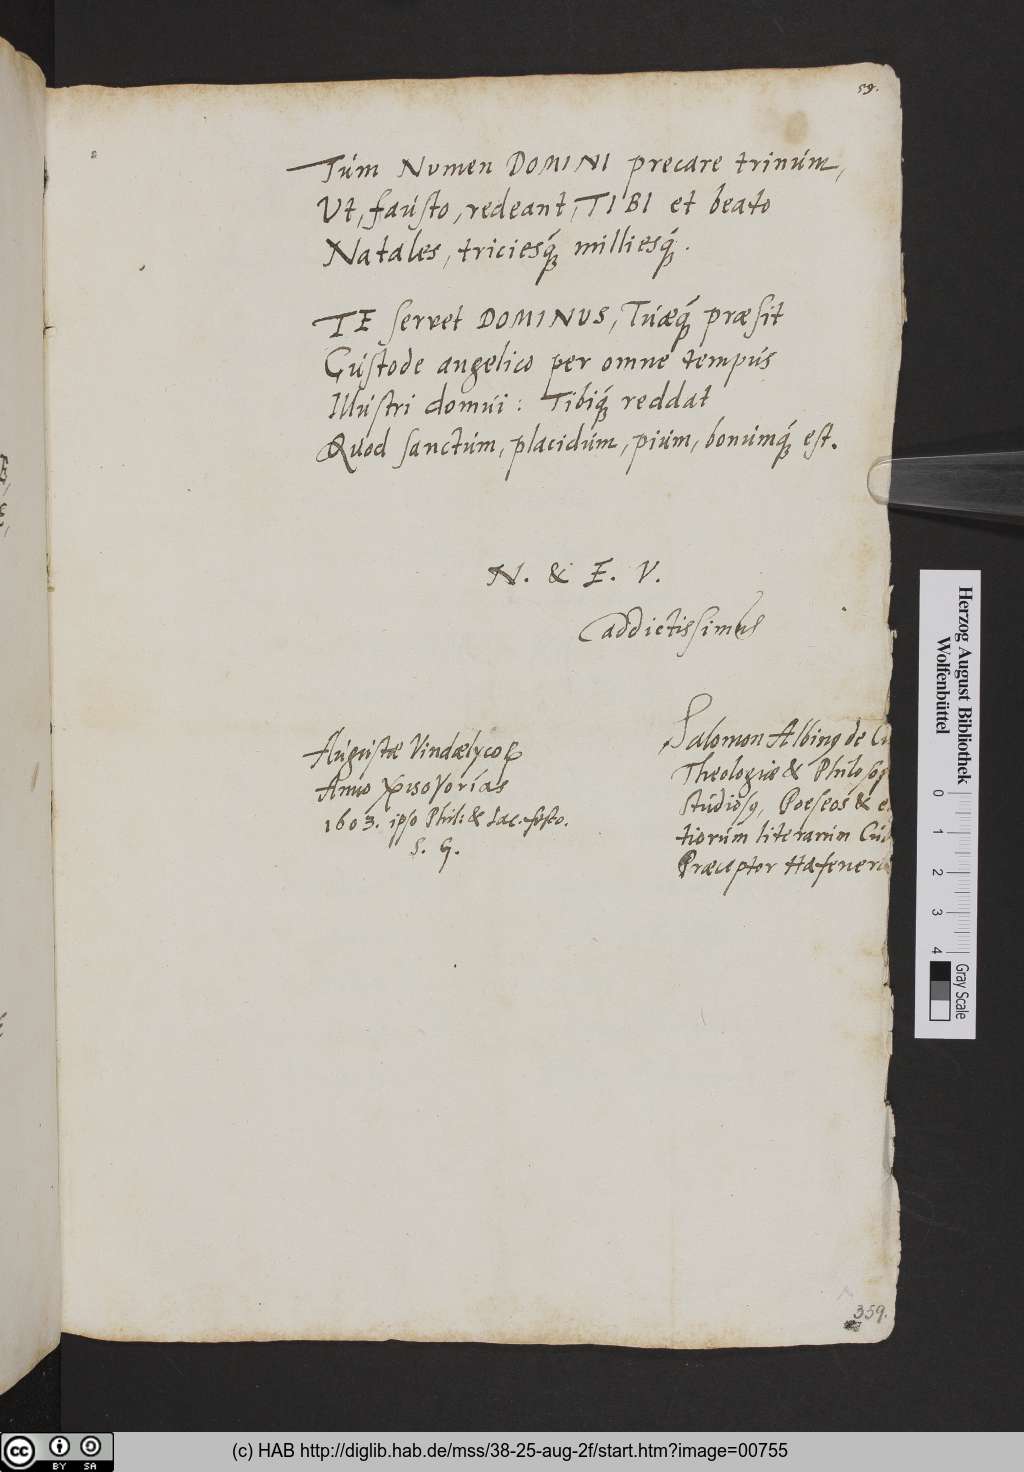 59.
Túm Numen DOMINI precare trinúm,
Ut, faústo, redeant, TIBI et beato
Natales, triciesq́ꝫ milliesq́ꝫ.
TE servet DOMINUS, Túæq́ꝫ præsit
Cústode angelico per omne tempús
Illústri domúi: Tibiq́ꝫ reddat
Qúod sanctúm, placidúm, piúm, bonúmq́ꝫ est.
N. & E. V.
addictissimus
Aúgústæ Vindælycoꝝ
Anno
1603. ipso Phil: & Jac. festo.
S. G.
Salomon Albinꝰ de
Theologiæ &
stúdiosꝰ, Poeseos &
tiorúm literarúm
Præceptor
359.
Herzog August Bibliothek
Wolfenbüttel
0 1 2 3 4
Gray Scale
cc BY SA
(c) HAB http://diglib.hab.de/mss/38-25-aug-2f/start.htm?image=00755